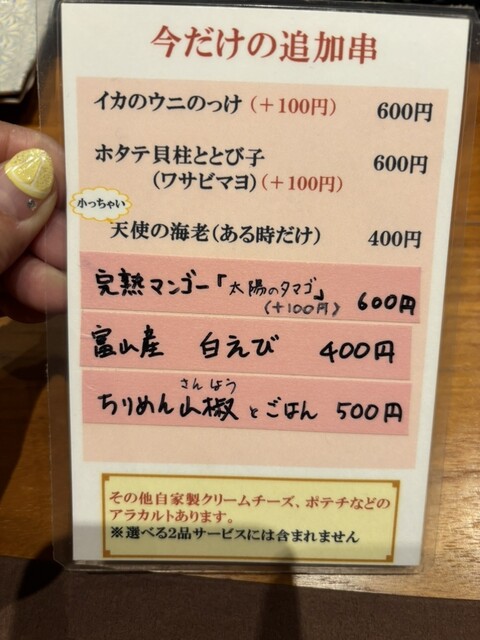 今だけの追加串
イカのウニのっけ（＋100円） 600円
ホタテ貝柱ととび子 600円
（ワサビマヨ）（＋100円）
小っちゃい
天使の海老（ある時だけ） 400円
完熟マンゴー「太陽のタマゴ」 600円
（＋100円）
富山産 白えび 400円
さんしょう
ちりめん山椒とごはん 500円
その他自家製クリームチーズ、ポテチなどの
アラカルトあります。
※選べる2品サービスには含まれません